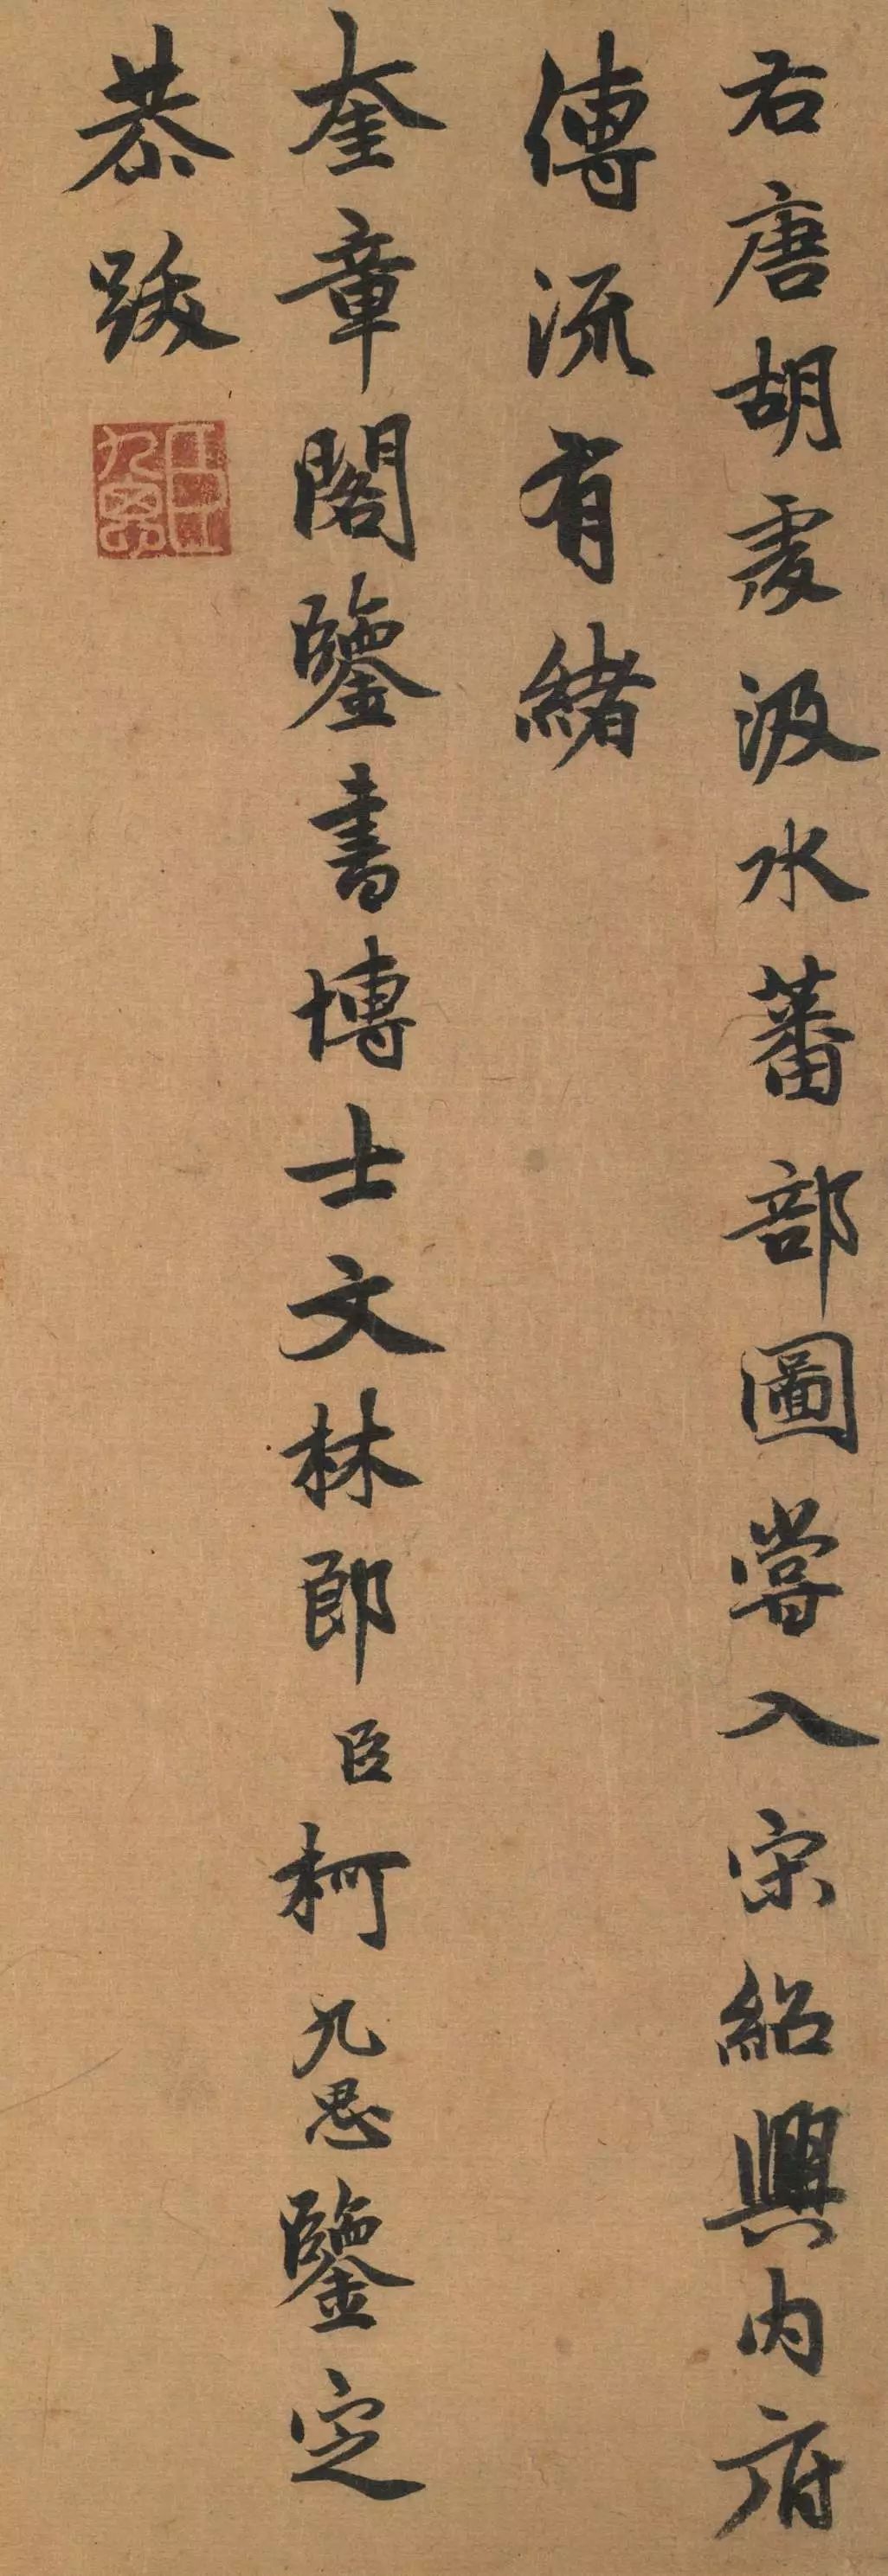 右唐胡虔汲水蕃部圖嘗入宋紹興内府
傳流有緒
奎章閣鑒書博士文林郎臣柯九思鑒定
恭跋
臣九思